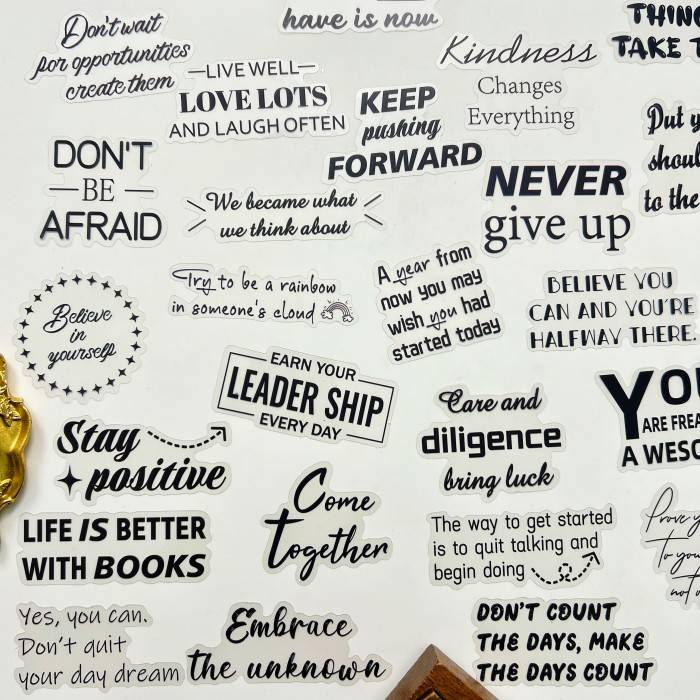 have is now
Don't wait
for opportunities
create them
—LIVE WELL—
LOVE LOTS
AND LAUGH OFTEN
Kindness
Changes
Everything
TAKE
KEEP
pushing
FORWARD
Put
to the
DON'T
—BE—
AFRAID
We became what
we think about
NEVER
give up
Believe
in
yourself
Try to be a rainbow
in someone's cloud
A year from
now you may
wish you had
started today
BELIEVE YOU
CAN AND YOU'RE
HALFWAY THERE.
EARN YOUR
LEADER SHIP
EVERY DAY
Care and
diligence
bring luck
ARE
A
Stay
positive
Come
together
LIFE IS BETTER
WITH BOOKS
The way to get started
is to quit talking and
begin doing
Prove
Yes, you can.
Don't quit
your day dream
Embrace
the unknown
DON'T COUNT
THE DAYS, MAKE
THE DAYS COUNT